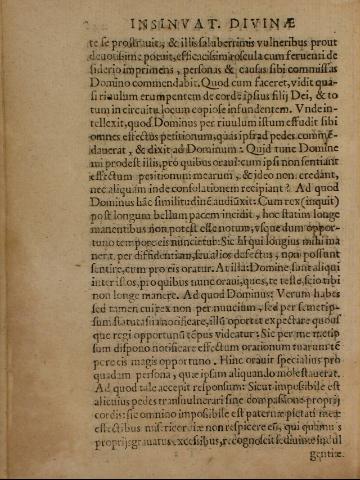 INSINVAT. DIVINÆ
te se prostrauit, & illis saluberrimis vulneribus prout
deuotissime potuit, efficacissima oscula cum feruenti de
siderio imprimens, personas & causas sibi commissas
Domino commendabit. Quod cum faceret, vidit qua-
si riuulum erumpentem de corde ipsius filij Dei, & to
tum in circuitu locum copiose infundentem. Vnde in-
tellexit, quod Dominus per riuulum istum effudit sibi
omnes effectus petitionum, quas ipsa ad pedes cummē-
dauerat, & dixit ad Dominum: Quid tunc Domine
mi prodest illis, pro quibus oraui: cum ipsi non sentiant
effectum petitionum mearum, & ideo non credant,
nec aliquam inde consolationem recipiant? Ad quod
Dominus hāc similitudinē audiuit: Cum rex (inquit)
post longum bellum pacem incidit, hoc statim longe
manentibus non potest esse notum, vsque dum oppor-
tuno tempore eis nuncietur: Sic hi qui longius mihi ma
nent per diffidentiam, seu alios defectus, non possunt
sentire, cum pro eis oratur. At illa: Domine, sunt aliqui
inter istos, pro quibus nunc oraui, ques, te teste, scio tibi
non longe manere. Ad quod Dominus: Verum habes
sed tamen cui rex non per nuncium, sed per semetip-
sum statuta sua notificare, illū oportet expectare quousq
que regi opportunū tēpus videatur: Sic per me metip
sum dispono notificare effectum orationum tuarum tē
pere eis magis opportuno. Hinc orauit specialius pro
quadam persona, quæ ipsam aliquando molestauerat.
Ad quod tale accepit responsum: Sicut impossibile est
alicuius pedes transuulnerari sine compassione proprij
cordis: sic omnino impossibile est paternæ pietati meæ
effectibus misericordiæ non respicere eū, qui quamuis
proprijs grauatus excessibus, recognoscit se diuine indul
gentiæ